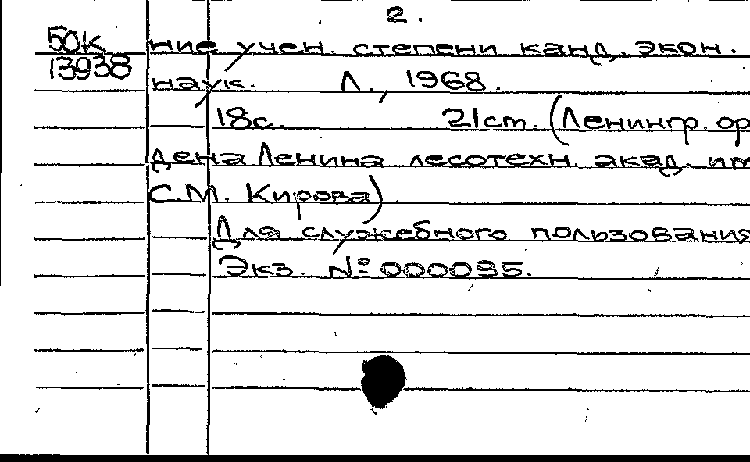 2.
50К ние учен. степени канд. экон.
13938 наук. Л., 1968.
18с. 21см. (Ленингр. ор
дена Ленина лесотехн. акад. им
С.М. Кирова)
Для служебного пользования
Экз. № 000095.